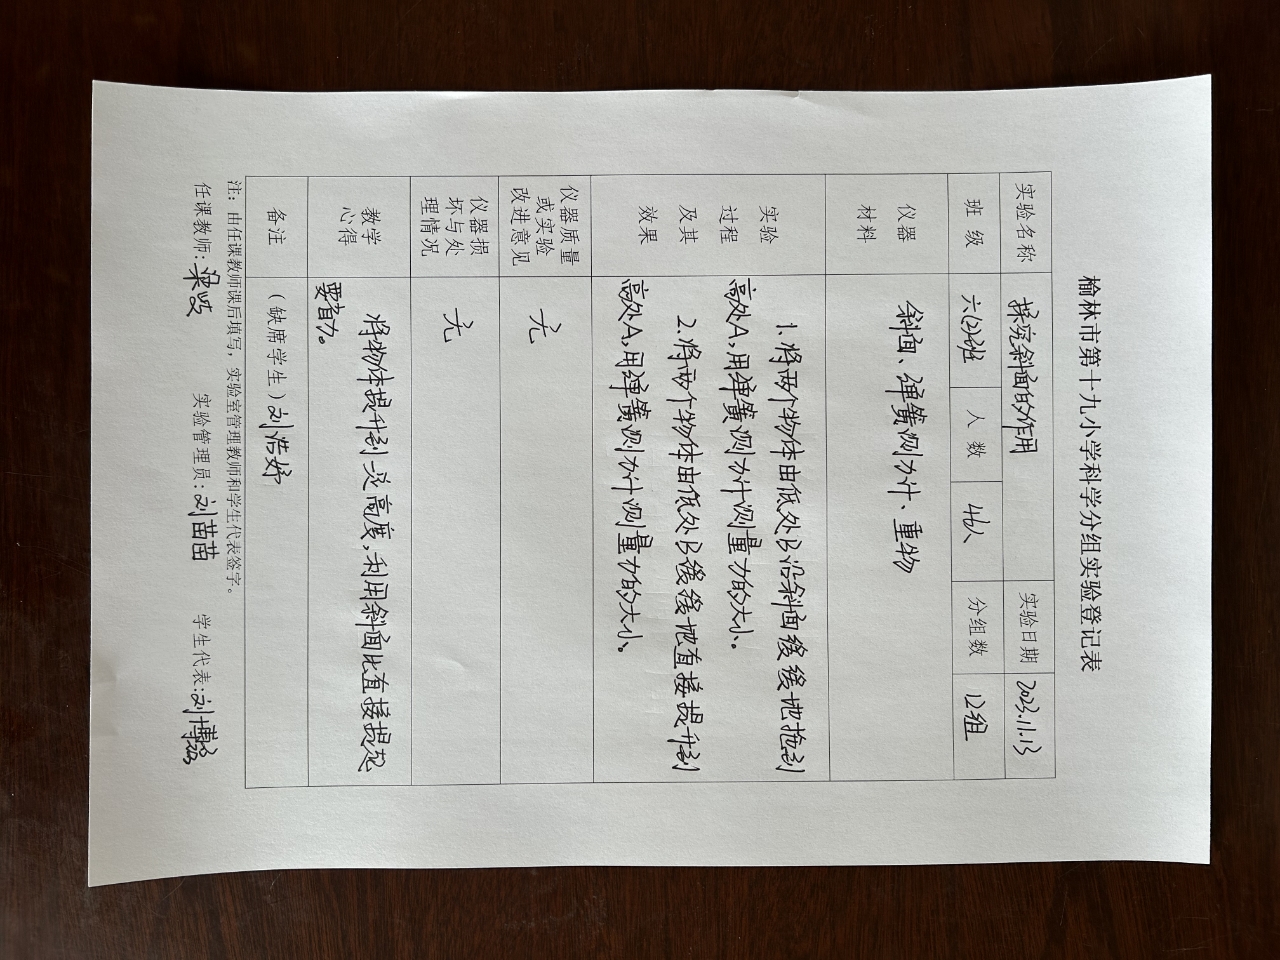 榆林市第十九小学科学分组实验登记表
实验名称 探究斜面的作用 实验日期 2023.11.13
班级 六(2)班 人数 46人 分组数 12组
仪器材料 斜面、弹簧测力计、重物
实验过程及其效果
1.将两个物体由低处B沿斜面缓缓地拖到
高处A,用弹簧测力计测量力的大小。
2.将两个物体由低处B缓缓地直接提升到
高处A,用弹簧测力计测量力的大小。
仪器质量或实验改进意见 无
仪器损坏与处理情况 无
教学心得
将物体提升到一定高度,利用斜面比直接提起
要省力。
备注 (缺席学生)刘浩婷
注:由任课教师课后填写,实验室管理教师和学生代表签字。
任课教师: 实验管理员:刘苗苗 学生代表:刘博